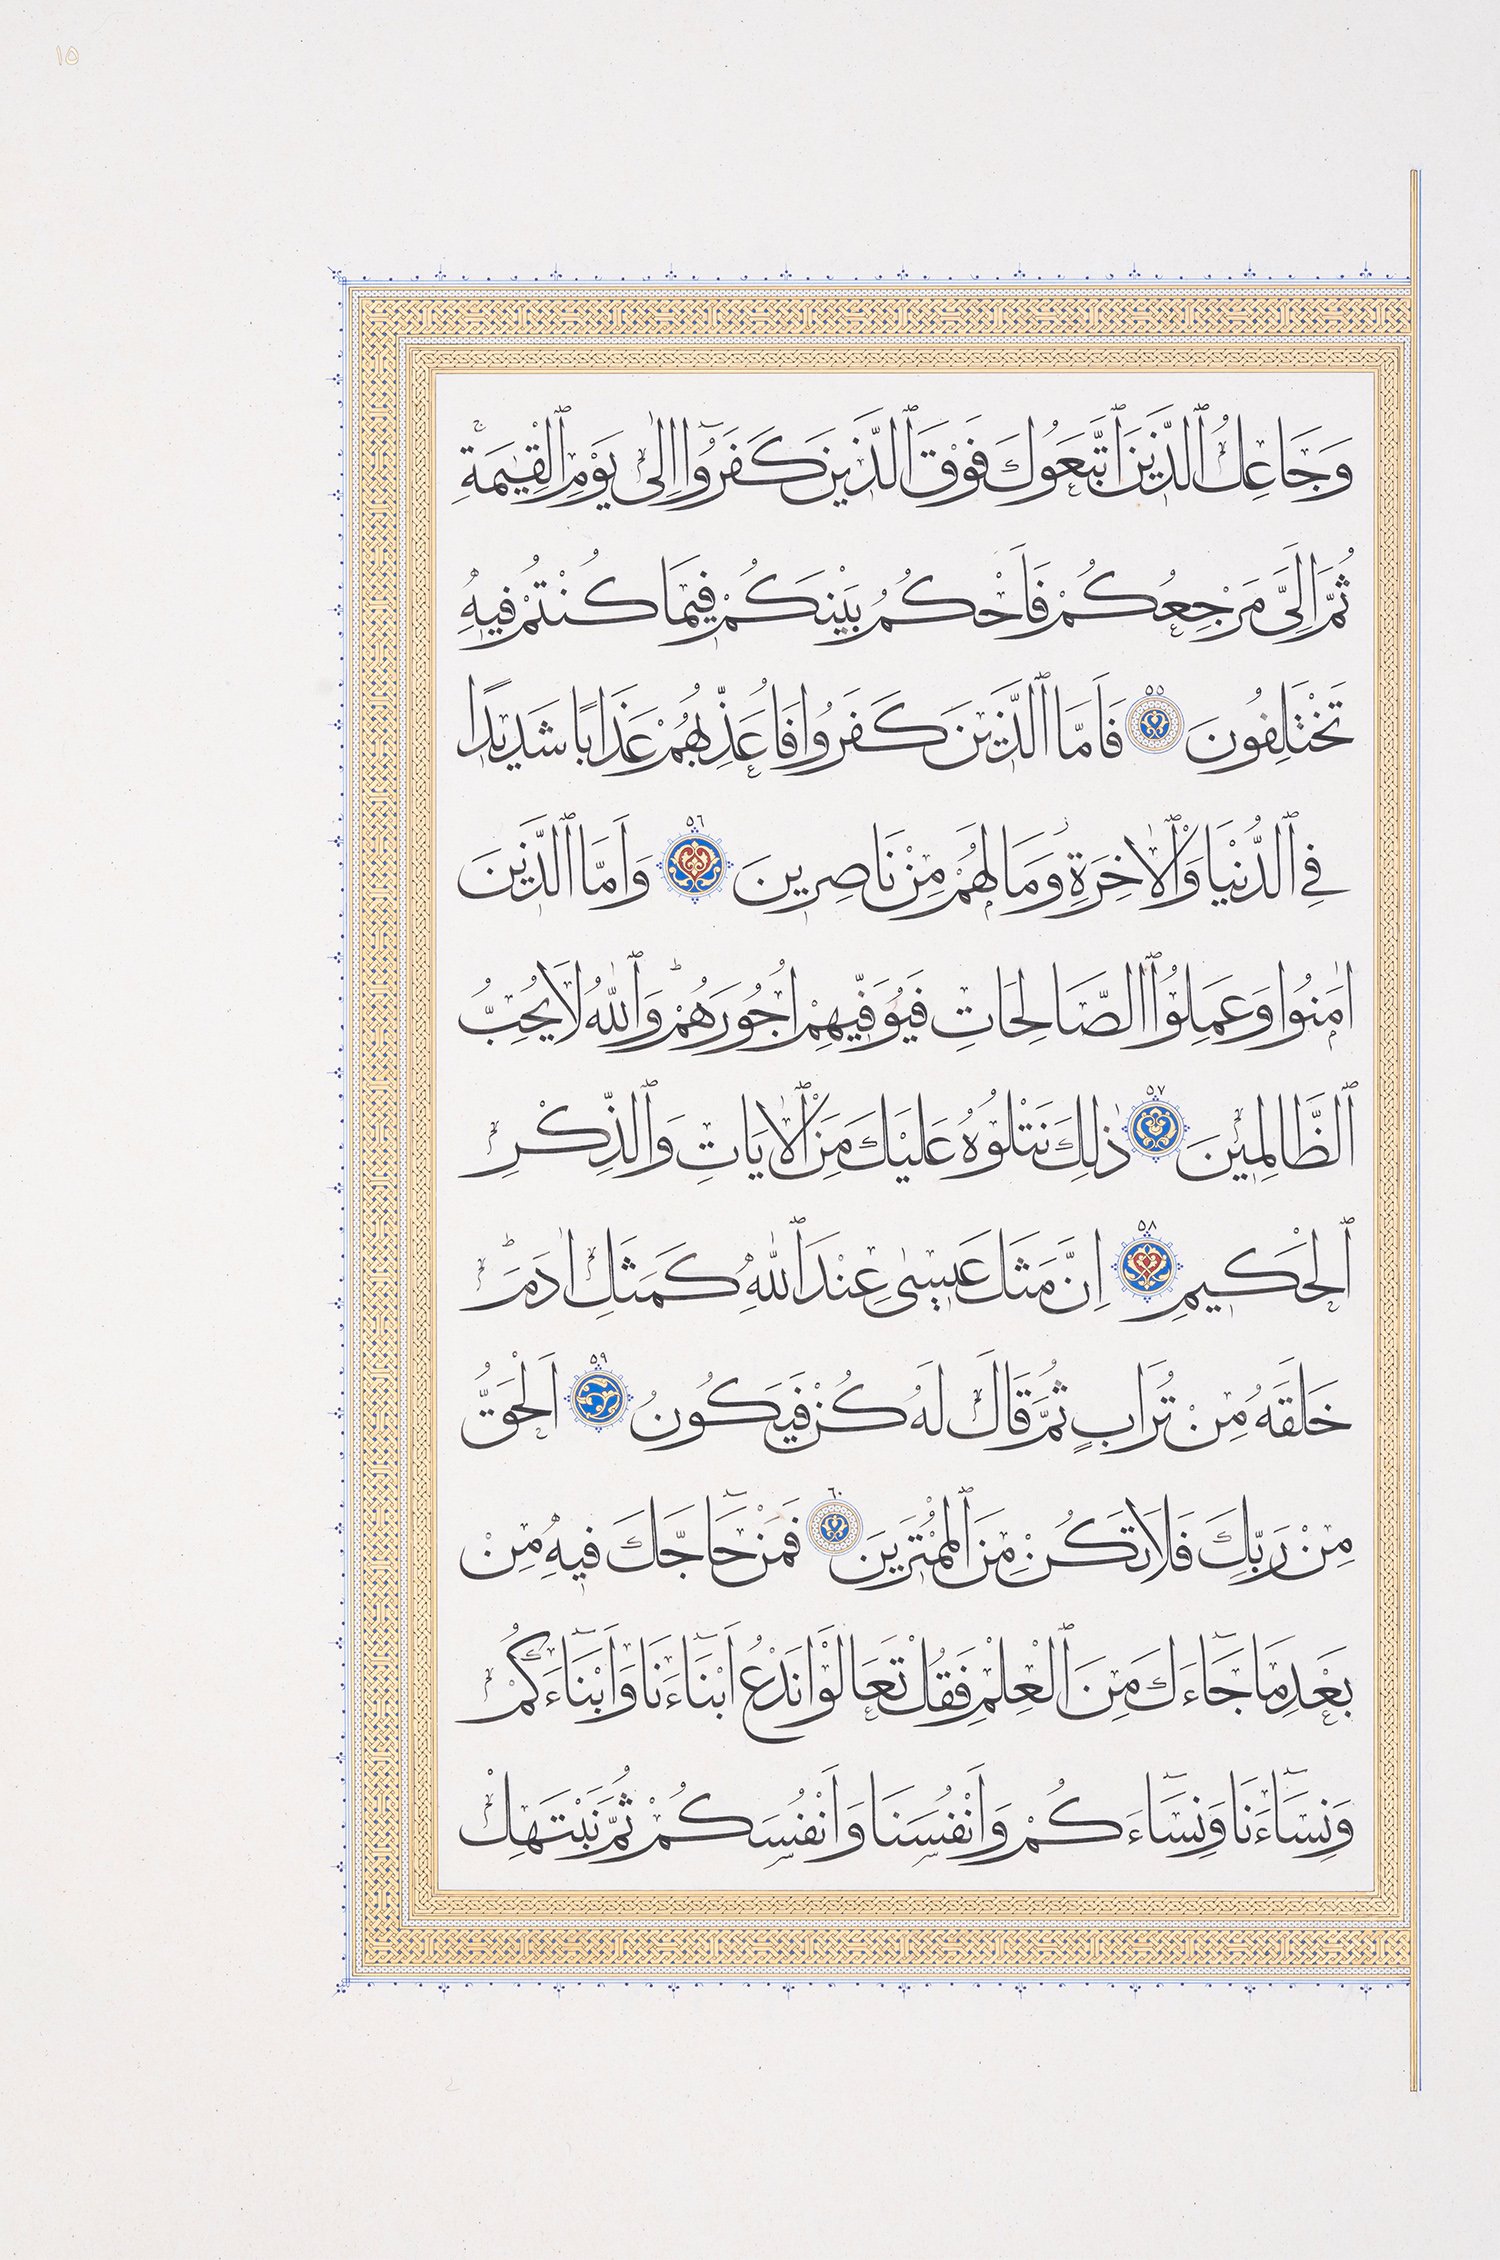 ١٥
وَجَاعِلُ ٱلَّذِينَ ٱتَّبَعُوكَ فَوْقَ ٱلَّذِينَ كَفَرُٓوا اِلٰى يَوْمِ ٱلْقِيٰمَةِۚ
ثُمَّ اِلَيَّ مَرْجِعُكُمْ فَاَحْكُمُ بَيْنَكُمْ فِيمَا كُنْتُمْ فِيهِ
تَخْتَلِفُونَ ٥٥ فَاَمَّا ٱلَّذِينَ كَفَرُوا فَاُعَذِّبُهُمْ عَذَابًا شَدِيدًا
فِي ٱلدُّنْيَا وَٱلْاٰخِرَةِۘ وَمَا لَهُمْ مِنْ نَاصِرِينَ ٥٦ وَاَمَّا ٱلَّذِينَ
اٰمَنُوا وَعَمِلُوا ٱلصَّالِحَاتِ فَيُوَفِّيهِمْ اُجُورَهُمْۜ وَٱللّٰهُ لَا يُحِبُّ
ٱلظَّالِمِينَ ٥٧ ذٰلِكَ نَتْلُوهُ عَلَيْكَ مِنَ ٱلْاٰيَاتِ وَٱلذِّكْرِ
ٱلْحَكِيمِ ٥٨ اِنَّ مَثَلَ عِيسٰى عِنْدَ ٱللّٰهِ كَمَثَلِ اٰدَمَۜ
خَلَقَهُ مِنْ تُرَابٍ ثُمَّ قَالَ لَهُ كُنْ فَيَكُونُ ٥٩ اَلْحَقُّ
مِنْ رَبِّكَ فَلَا تَكُنْ مِنَ ٱلْمُمْتَرِينَ ٦٠ فَمَنْ حَٓاجَّكَ فِيهِ مِنْ
بَعْدِ مَا جَٓاءَكَ مِنَ ٱلْعِلْمِ فَقُلْ تَعَالَوْا نَدْعُ اَبْنَٓاءَنَا وَاَبْنَٓاءَكُمْ
وَنِسَٓاءَنَا وَنِسَٓاءَكُمْ وَاَنْفُسَنَا وَاَنْفُسَكُمْ ثُمَّ نَبْتَهِلْ